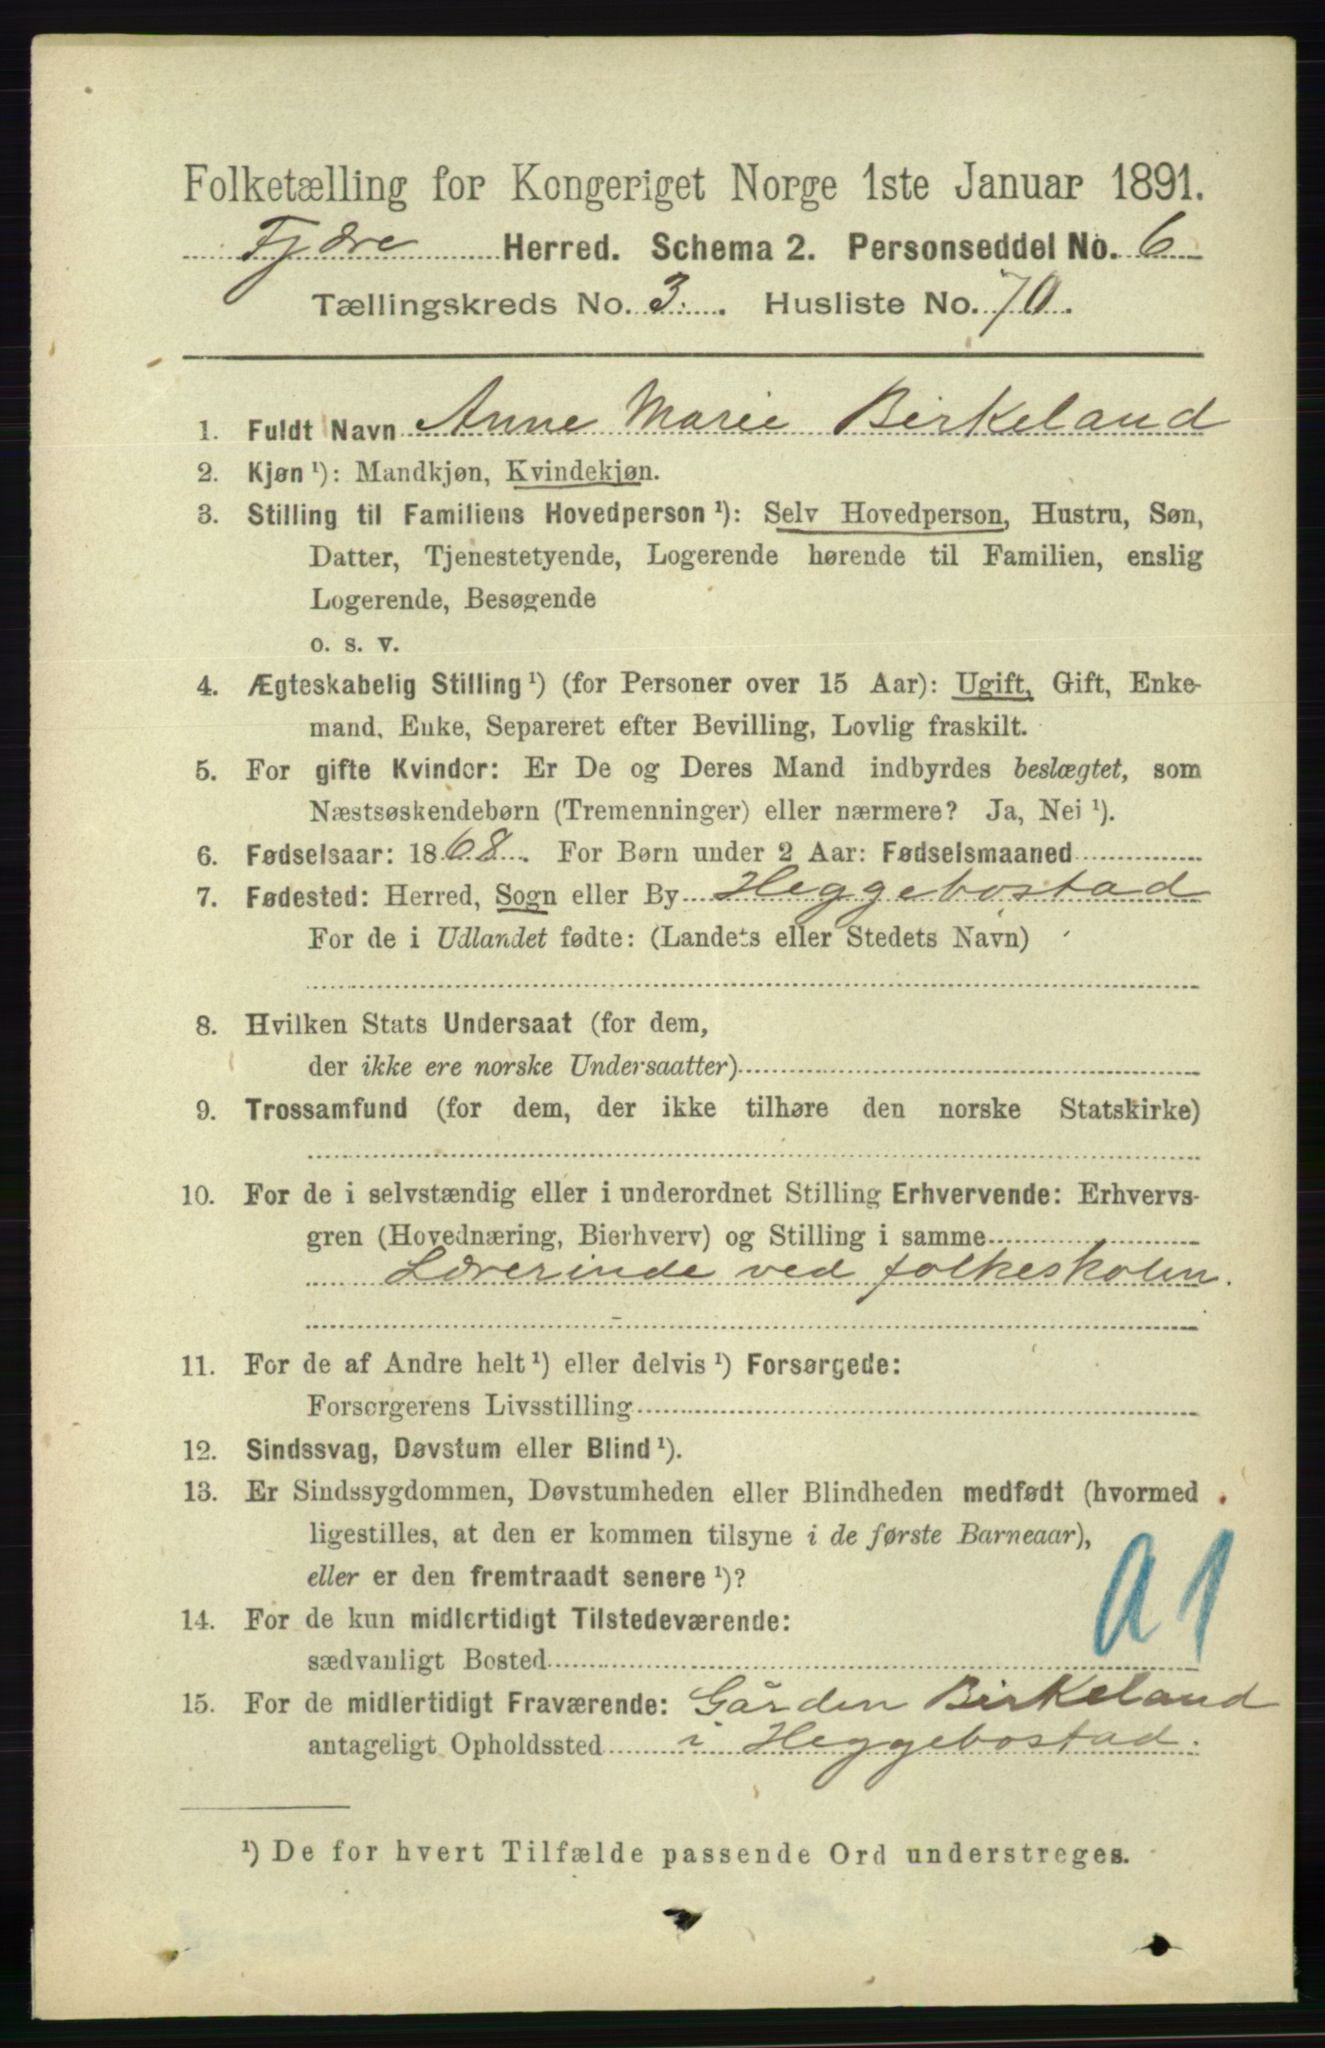 Folketælling for Kongeriget Norge 1ste Januar 1891.
Fjære Herred. Schema 2. Personseddel No. 6
Tællingskreds No. 3. Husliste No. 70.
1. Fuldt Navn Anne Marie Birkeland
2. Kjøn ¹): Mandkjøn, Kvindekjøn.
3. Stilling til Familiens Hovedperson ¹): Selv Hovedperson, Hustru, Søn,
Datter, Tjenestetyende, Logerende hørende til Familien, enslig
Logerende, Besøgende
o. s. v.
4. Ægteskabelig Stilling ¹) (for Personer over 15 Aar): Ugift, Gift, Enke-
mand, Enke, Separeret efter Bevilling, Lovlig fraskilt.
5. For gifte Kvinder: Er De og Deres Mand indbyrdes beslægtet, som
Næstsøskendebørn (Tremenninger) eller nærmere? Ja, Nei ¹).
6. Fødselsaar: 1868. For Børn under 2 Aar: Fødselsmaaned
7. Fødested: Herred, Sogn eller By Heggebostad
For de i Udlandet fødte: (Landets eller Stedets Navn)
8. Hvilken Stats Undersaat (for dem,
der ikke ere norske Undersaatter)
9. Trossamfund (for dem, der ikke tilhøre den norske Statskirke)
10. For de i selvstændig eller i underordnet Stilling Erhvervende: Erhvervs-
gren (Hovednæring, Bierhverv) og Stilling i samme
Lærerinde ved folkeskolen.
11. For de af Andre helt ¹) eller delvis ¹) Forsørgede:
Forsørgerens Livsstilling
12. Sindssvag, Døvstum eller Blind ¹).
13. Er Sindssygdommen, Døvstumheden eller Blindheden medfødt (hvormed
ligestilles, at den er kommen tilsyne i de første Barneaar),
eller er den fremtraadt senere ¹)?
14. For de kun midlertidigt Tilstedeværende:
sædvanligt Bosted
a 1
15. For de midlertidigt Fraværende: Gården Birkeland
antageligt Opholdssted i Heggebostad.
¹) De for hvert Tilfælde passende Ord understreges.